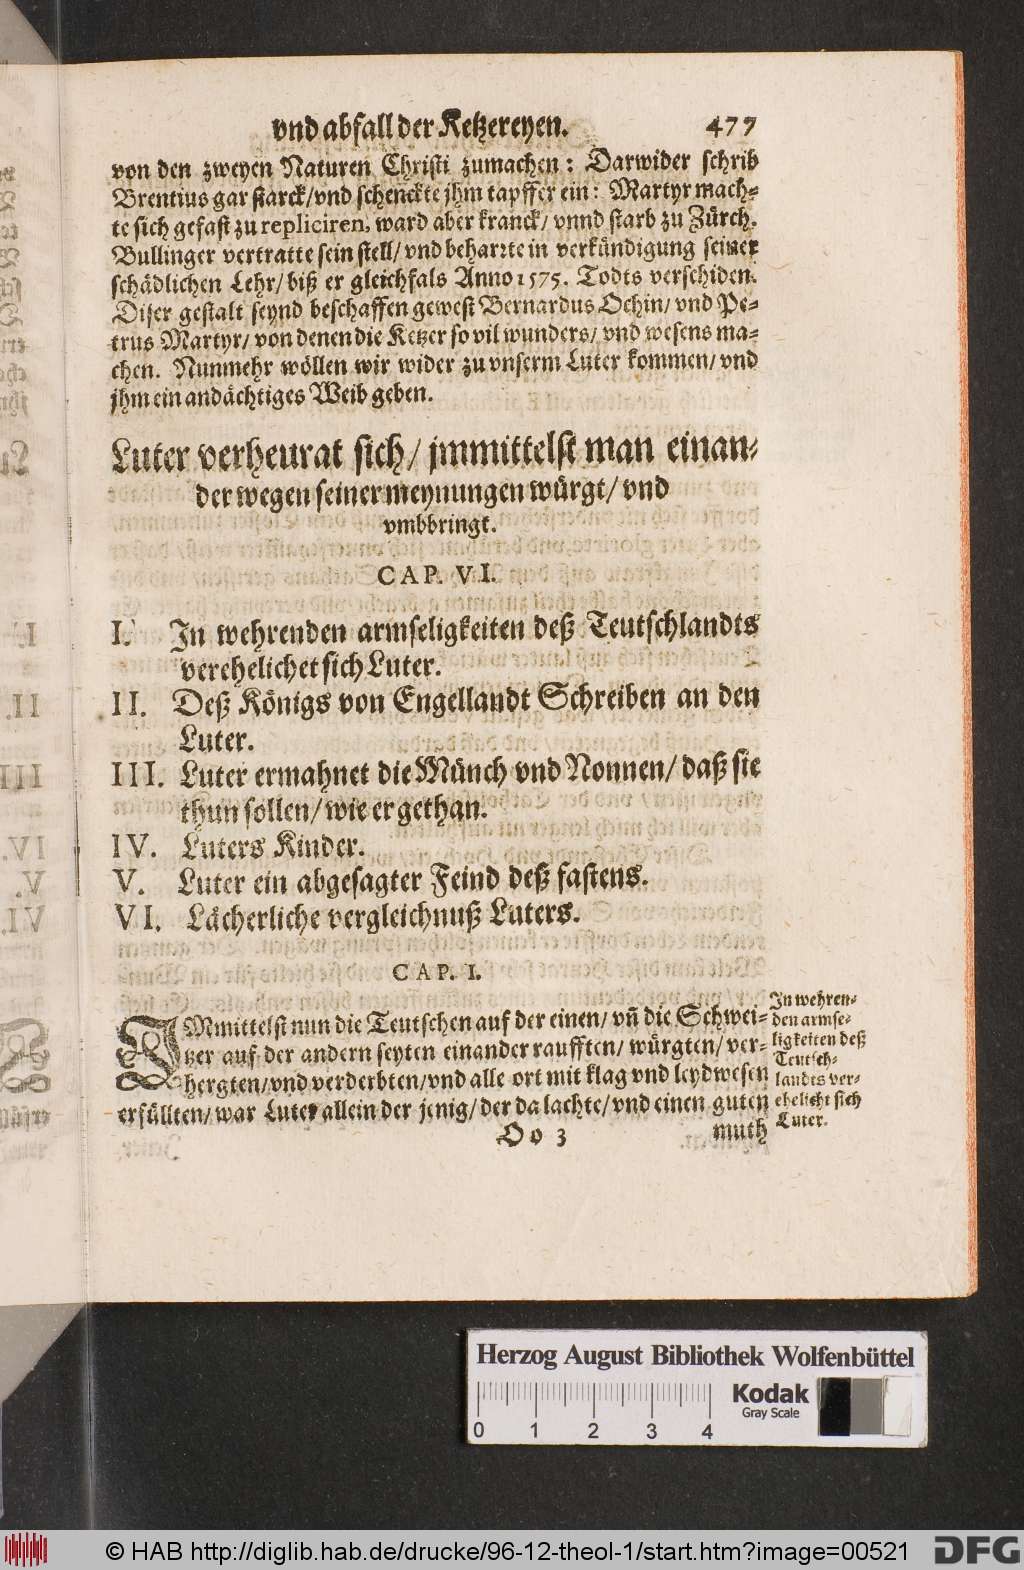 vnd abfall der Ketzereyen. 477
von den zweyen Naturen Christi zumachen: Darwider schrib
Brentius gar starck/vnd schenckte jhm tapffer ein: Martyr mach-
te sich gefast zu repliciren, ward aber kranck/ vnnd starb zu Zürch.
Bullinger vertratte sein stell/ vnd beharrte in verkündigung seiner
schädlichen Lehr/ biß er gleichfals Anno 1575. Todts verschiden.
Diser gestalt seynd beschaffen gewest Bernardus Ochin/ vnd Pe-
trus Martyr/ von denen die Ketzer so vil wunders/ vnd wesens ma-
chen. Nunmehr wöllen wir wider zu vnserm Luter kommen/ vnd
jhm ein andächtiges Weib geben.
Luter verheurat sich/ jmmittelst man einan-
der wegen seiner meynungen würgt/ vnd
vmbbringt.
CAP. VI.
I. In wehrenden armseligkeiten deß Teutschlandts
verehelichet sich Luter.
II. Deß Königs von Engellandt Schreiben an den
Luter.
III. Luter ermahnet die Münch vnd Nonnen/ daß sie
thun sollen/ wie er gethan.
IV. Luters Kinder.
V. Luter ein abgesagter Feind deß fastens.
VI. Lächerliche vergleichnuß Luters.
CAP. I.
IMmittelst nun die Teutschen auf der einen/ vñ die Schwei-
tzer auf der andern seyten einander raufften/ würgten/ ver-
hergten/vnd verderbten/vnd alle ort mit klag vnd leydwesen
erfüllten/ war Luter allein der jenig/ der da lachte/ vnd einen guten
In wehren-
den armse-
ligkeiten deß
Teutsch-
landts ver-
ehelicht sich
Luter.
Oo 3 muth
Herzog August Bibliothek Wolfenbüttel
0 1 2 3 4
Kodak
Gray Scale
© HAB http://diglib.hab.de/drucke/96-12-theol-1/start.htm?image=00521
DFG